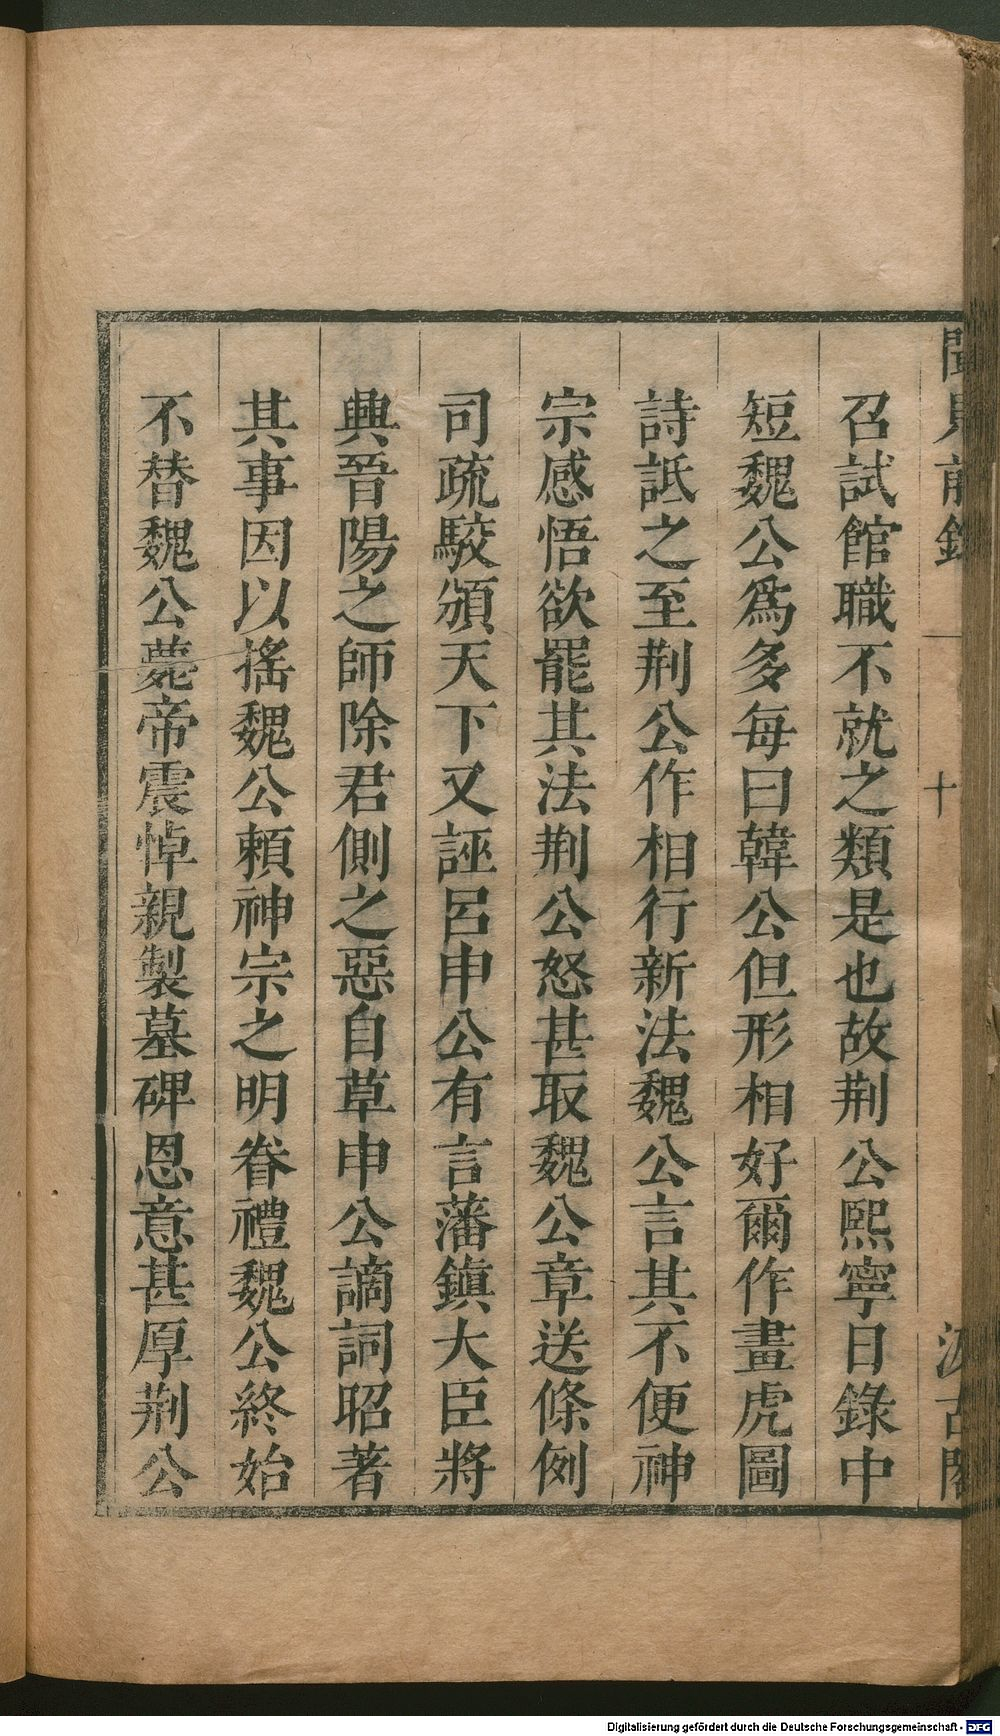 聞見前錄 一 十 汲古閣
召試館職不就之類是也故荆公熙寧日錄中
短魏公爲多每曰韓公但形相好爾作畫虎圖
詩詆之至荆公作相行新法魏公言其不便神
宗感悟欲罷其法荆公怒甚取魏公章送條例
司疏駮頒天下又誣呂申公有言藩鎮大臣將
興晉陽之師除君側之惡自草申公謫詞昭著
其事因以搖魏公賴神宗之明眷禮魏公終始
不替魏公薨帝震悼親製墓碑恩意甚厚荆公
Digitalisierung gefördert durch die Deutsche Forschungsgemeinschaft - DFG